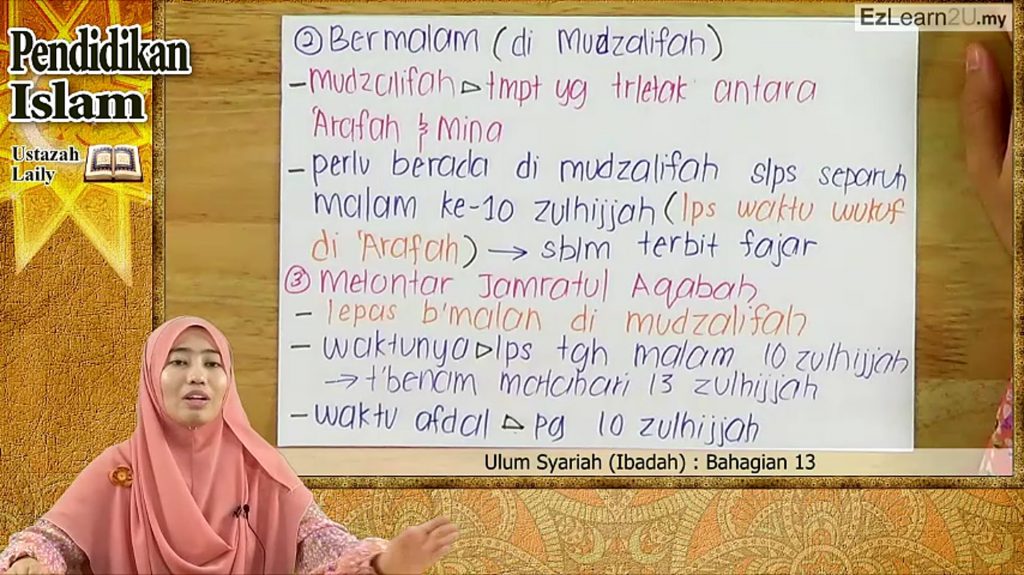 EzLearn2U.my
Pendidikan
Islam
Ustazah
Laily
② Bermalam (di Mudzalifah)
- Mudzalifah ▷ tmpt yg trletak antara
'Arafah & Mina
- perlu berada di mudzalifah slps separuh
malam ke-10 zulhijjah (lps waktu wukuf
di 'Arafah) → sblm terbit fajar
③ Melontar Jamratul Aqabah
- lepas b'malah di mudzalifah
- waktunya ▷ lps tgh malam 10 zulhijjah
→ t'benam matahari 13 zulhijjah
- waktu afdal ▷ pg 10 zulhijjah
Ulum Syariah (Ibadah) : Bahagian 13